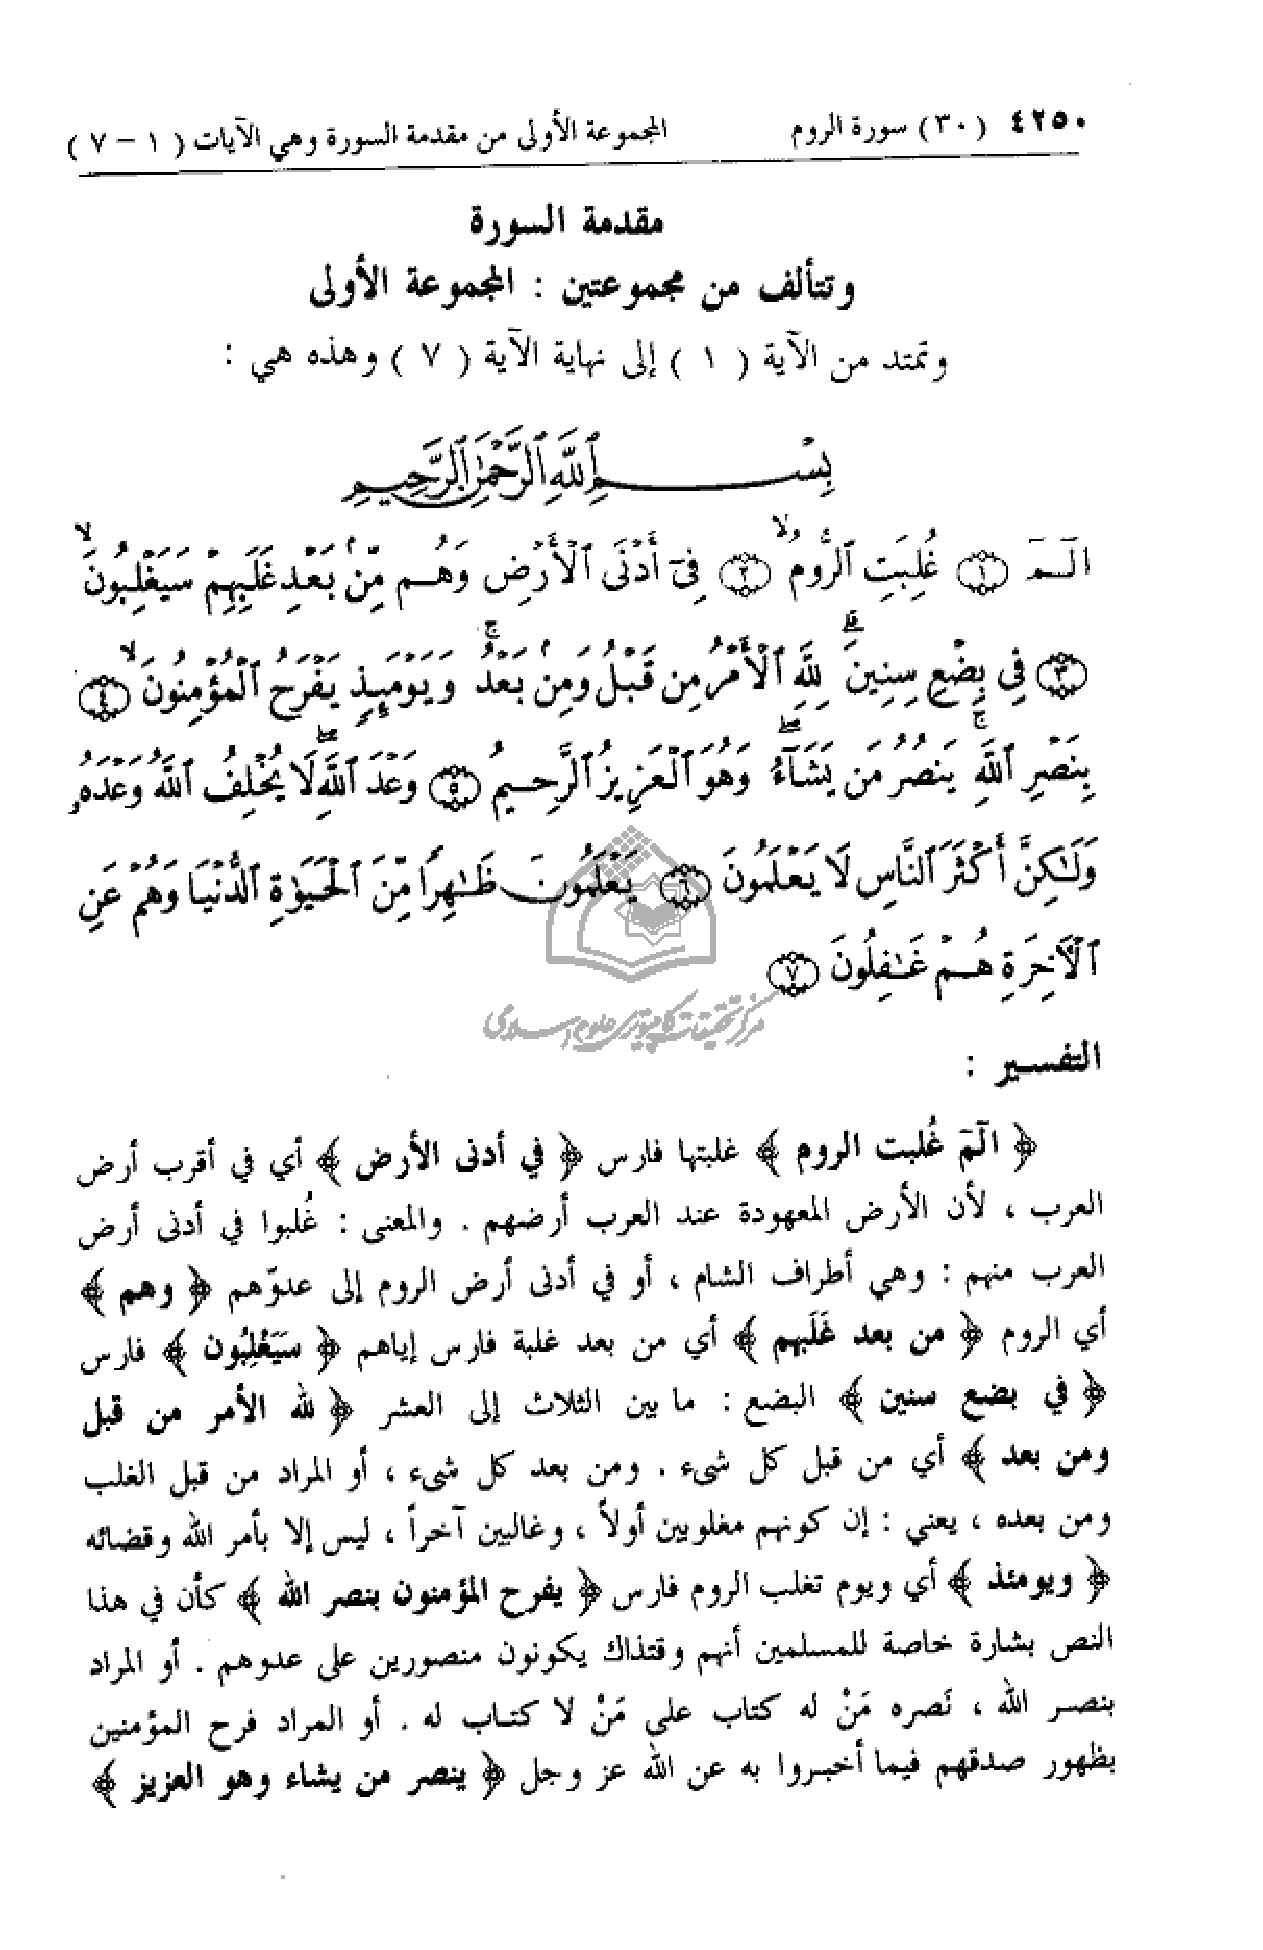 ٤٢٥٠ (٣٠) سورة الروم المجموعة الأولى من مقدمة السورة وهي الآيات ( ١ – ٧ )
مقدمة السورة
وتتألف من مجموعتين : المجموعة الأولى
وتمتد من الآية ( ١ ) إلى نهاية الآية ( ٧ ) وهذه هي :
بِسْمِ ٱللَّهِ ٱلرَّحْمَٰنِ ٱلرَّحِيمِ
الٓمٓ ١ غُلِبَتِ ٱلرُّومُ ٢ فِىٓ أَدْنَى ٱلْأَرْضِ وَهُم مِّنۢ بَعْدِ غَلَبِهِمْ سَيَغْلِبُونَ
٣ فِى بِضْعِ سِنِينَ ۗ لِلَّهِ ٱلْأَمْرُ مِن قَبْلُ وَمِنۢ بَعْدُ ۚ وَيَوْمَئِذٍ يَفْرَحُ ٱلْمُؤْمِنُونَ ٤
بِنَصْرِ ٱللَّهِ ۚ يَنصُرُ مَن يَشَآءُ ۖ وَهُوَ ٱلْعَزِيزُ ٱلرَّحِيمُ ٥ وَعْدَ ٱللَّهِ ۖ لَا يُخْلِفُ ٱللَّهُ وَعْدَهُۥ
وَلَٰكِنَّ أَكْثَرَ ٱلنَّاسِ لَا يَعْلَمُونَ ٦ يَعْلَمُونَ ظَٰهِرًا مِّنَ ٱلْحَيَوٰةِ ٱلدُّنْيَا وَهُمْ عَنِ
ٱلْءَاخِرَةِ هُمْ غَٰفِلُونَ ٧
مركز تحقيقات كامپيوترى علوم اسلامى
التفسير :
﴿ الٓمٓ غُلبت الروم ﴾ غلبتها فارس ﴿ في أدنى الأرض ﴾ أي في أقرب أرض
العرب ، لأن الأرض المعهودة عند العرب أرضهم . والمعنى : غُلبوا في أدنى أرض
العرب منهم : وهي أطراف الشام ، أو في أدنى أرض الروم إلى عدوّهم ﴿ وهم ﴾
أي الروم ﴿ من بعد غَلَبهم ﴾ أي من بعد غلبة فارس إياهم ﴿ سَيَغْلِبُون ﴾ فارس
﴿ في بضع سنين ﴾ البضع : ما بين الثلاث إلى العشر ﴿ لله الأمر من قبل
ومن بعد ﴾ أي من قبل كل شيء . ومن بعد كل شيء ، أو المراد من قبل الغلب
ومن بعده ، يعني : إن كونهم مغلوبين أولاً ، وغالبين آخراً ، ليس إلا بأمر الله وقضائه
﴿ ويومئذ ﴾ أي ويوم تغلب الروم فارس ﴿ يفرح المؤمنون بنصر الله ﴾ كأن في هذا
النص بشارة خاصة للمسلمين أنهم وقتذاك يكونون منصورين على عدوهم . أو المراد
بنصر الله ، نَصره مَنْ له كتاب على مَنْ لا كتاب له . أو المراد فرح المؤمنين
بظهور صدقهم فيما أخبروا به عن الله عز وجل ﴿ ينصر من يشاء وهو العزيز ﴾